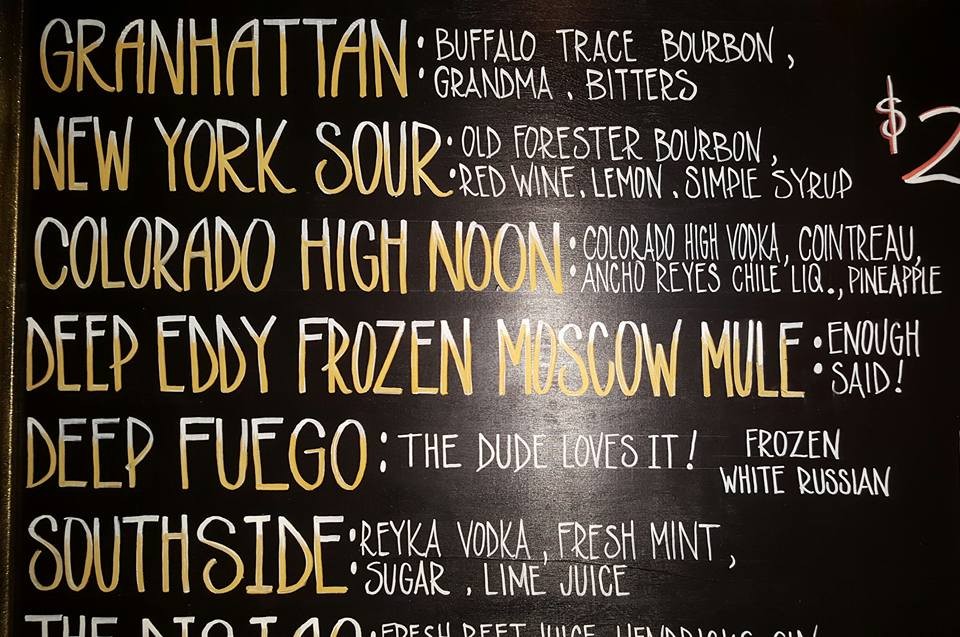 GRANHATTAN: BUFFALO TRACE BOURBON,
GRANDMA, BITTERS
$2
NEW YORK SOUR: OLD FORESTER BOURBON,
RED WINE, LEMON, SIMPLE SYRUP
COLORADO HIGH NOON: COLORADO HIGH VODKA, COINTREAU,
ANCHO REYES CHILE LIQ., PINEAPPLE
DEEP EDDY FROZEN MOSCOW MULE: ENOUGH
SAID!
DEEP FUEGO: THE DUDE LOVES IT! FROZEN
WHITE RUSSIAN
SOUTHSIDE: REYKA VODKA, FRESH MINT,
SUGAR, LIME JUICE
THE : FRESH BEET JUICE, HENDRICKS GIN,